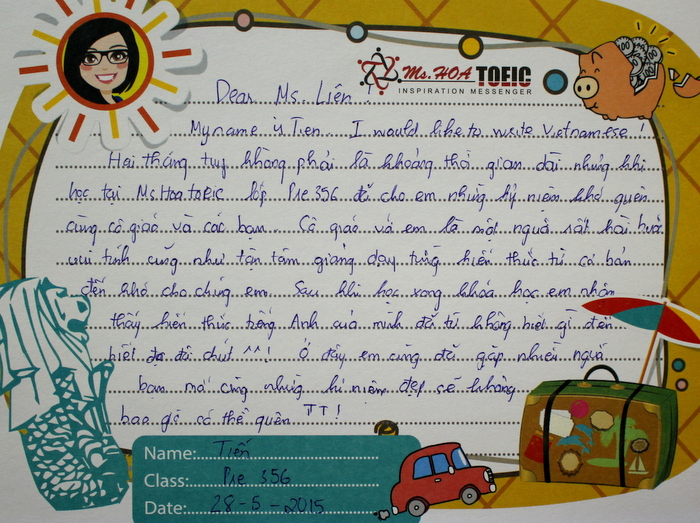 Ms. HOA TOEIC
INSPIRATION MESSENGER
Dear Ms. Liên !
My name is Tien I would like to write Vietnamese !
Hai tháng tuy không phải là khoảng thời gian dài nhưng khi
học tại Ms.Hoa TOEIC lớp Pre 356 đã cho em những kỷ niệm khó quên
cùng cô giáo và các bạn. Cô giáo và em là một người rất hài hước
vui tính cũng như tận tâm giảng dạy từng kiến thức từ cơ bản
đến khó cho chúng em. Sau khi học xong khóa học em nhận
thấy kiến thức tiếng Anh của mình đã từ không biết gì đến
biết đôi chút ^^! Ở đây em cũng đã gặp nhiều người
bạn mới cùng những kỉ niệm đẹp sẽ không
bao giờ có thể quên TT!
Name: Tiến
Class: Pre 356
Date: 28-5-2015